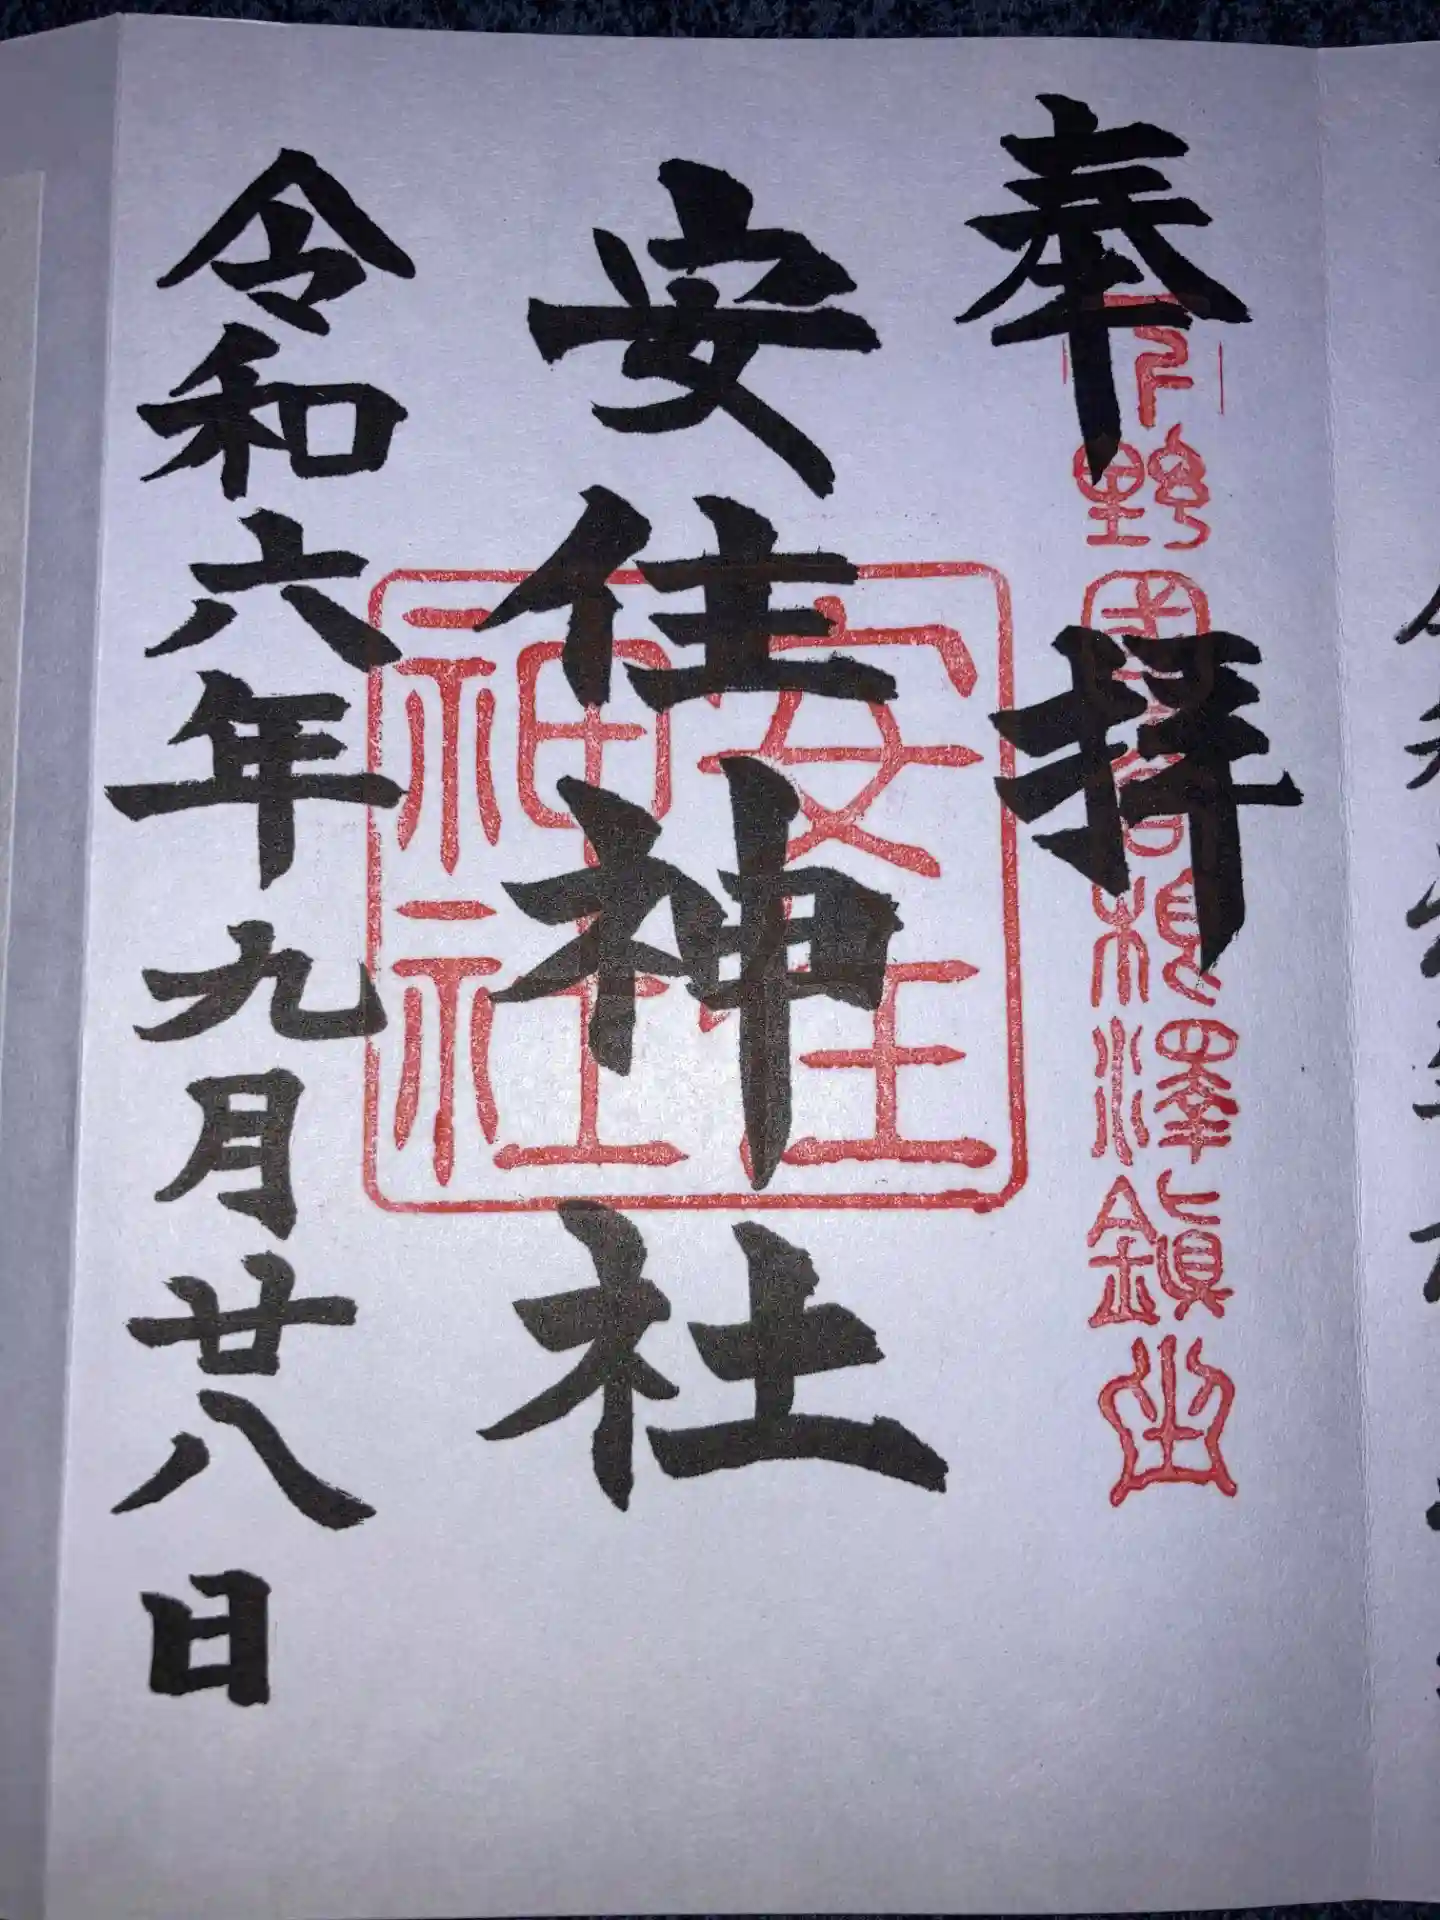 奉拝
下野國高根澤鎮坐
安住神社
安住
神社
令和六年九月廿八日